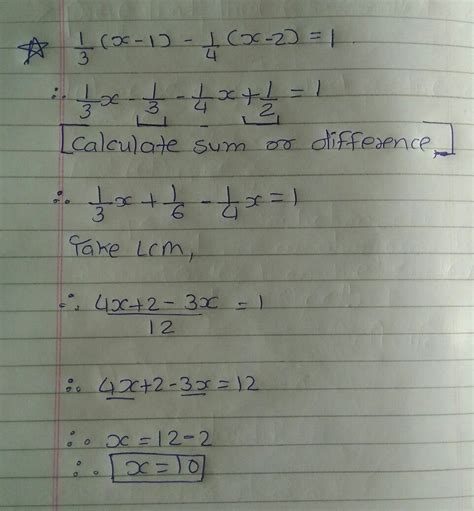 ☆ 1/3 (x-1) - 1/4 (x-2) = 1
∴ 1/3 x - 1/3 - 1/4 x + 1/2 = 1
[Calculate sum or difference]
∴ 1/3 x + 1/6 - 1/4 x = 1
Take LCM,
∴ (4x+2-3x)/12 = 1
∴ 4x+2-3x = 12
∴ x = 12-2
∴ x = 10